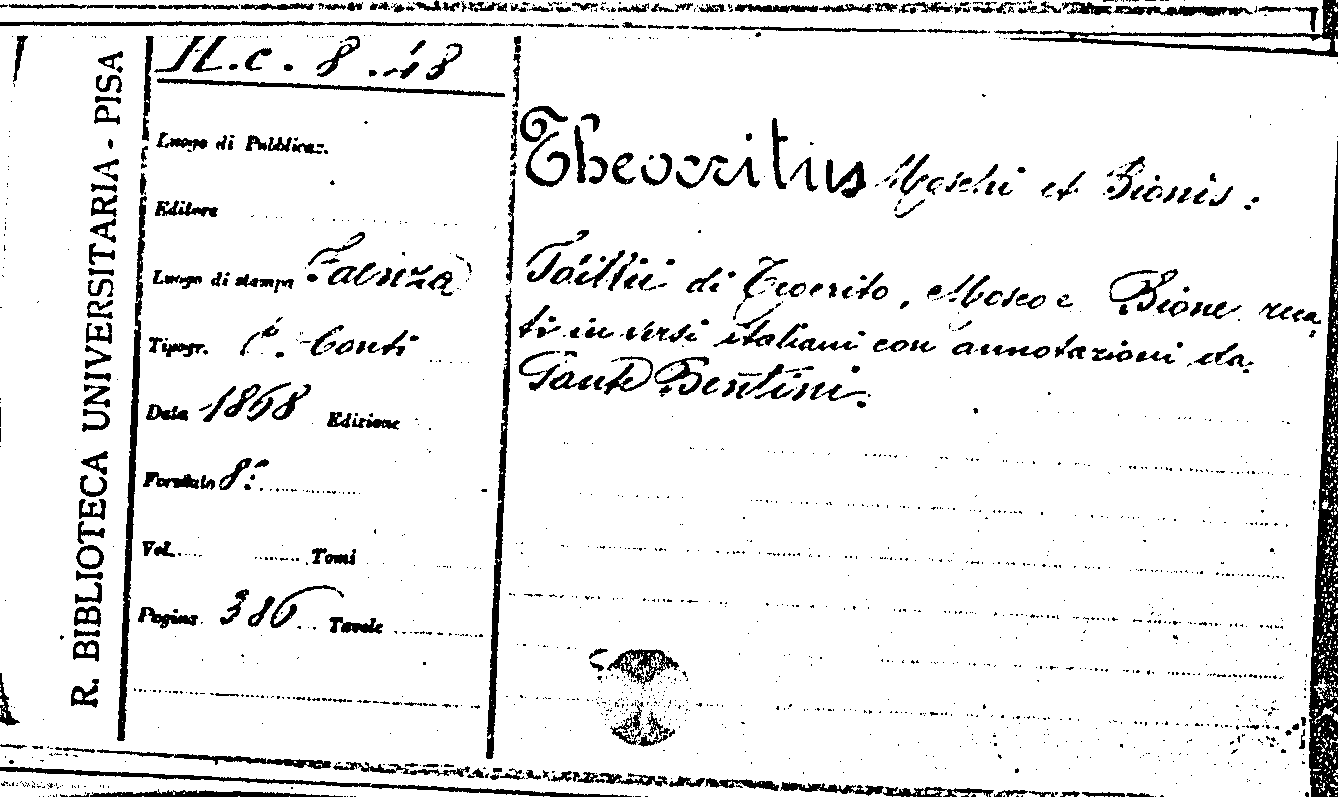 R. BIBLIOTECA UNIVERSITARIA - PISA
H.c. 8.48
Luogo di Pubblicaz.
Editore
Luogo di stampa Faenza
Tipogr. C. Conti
Data 1868 Edizione
Formato 8º
Vol. Tomi
Pagine 386 Tavole
Theocritius Moschi et Bionis:
Idillii di Teocrito, Mosco e Bione reca
ti in versi italiani con annotazioni da
Sante Bentini.